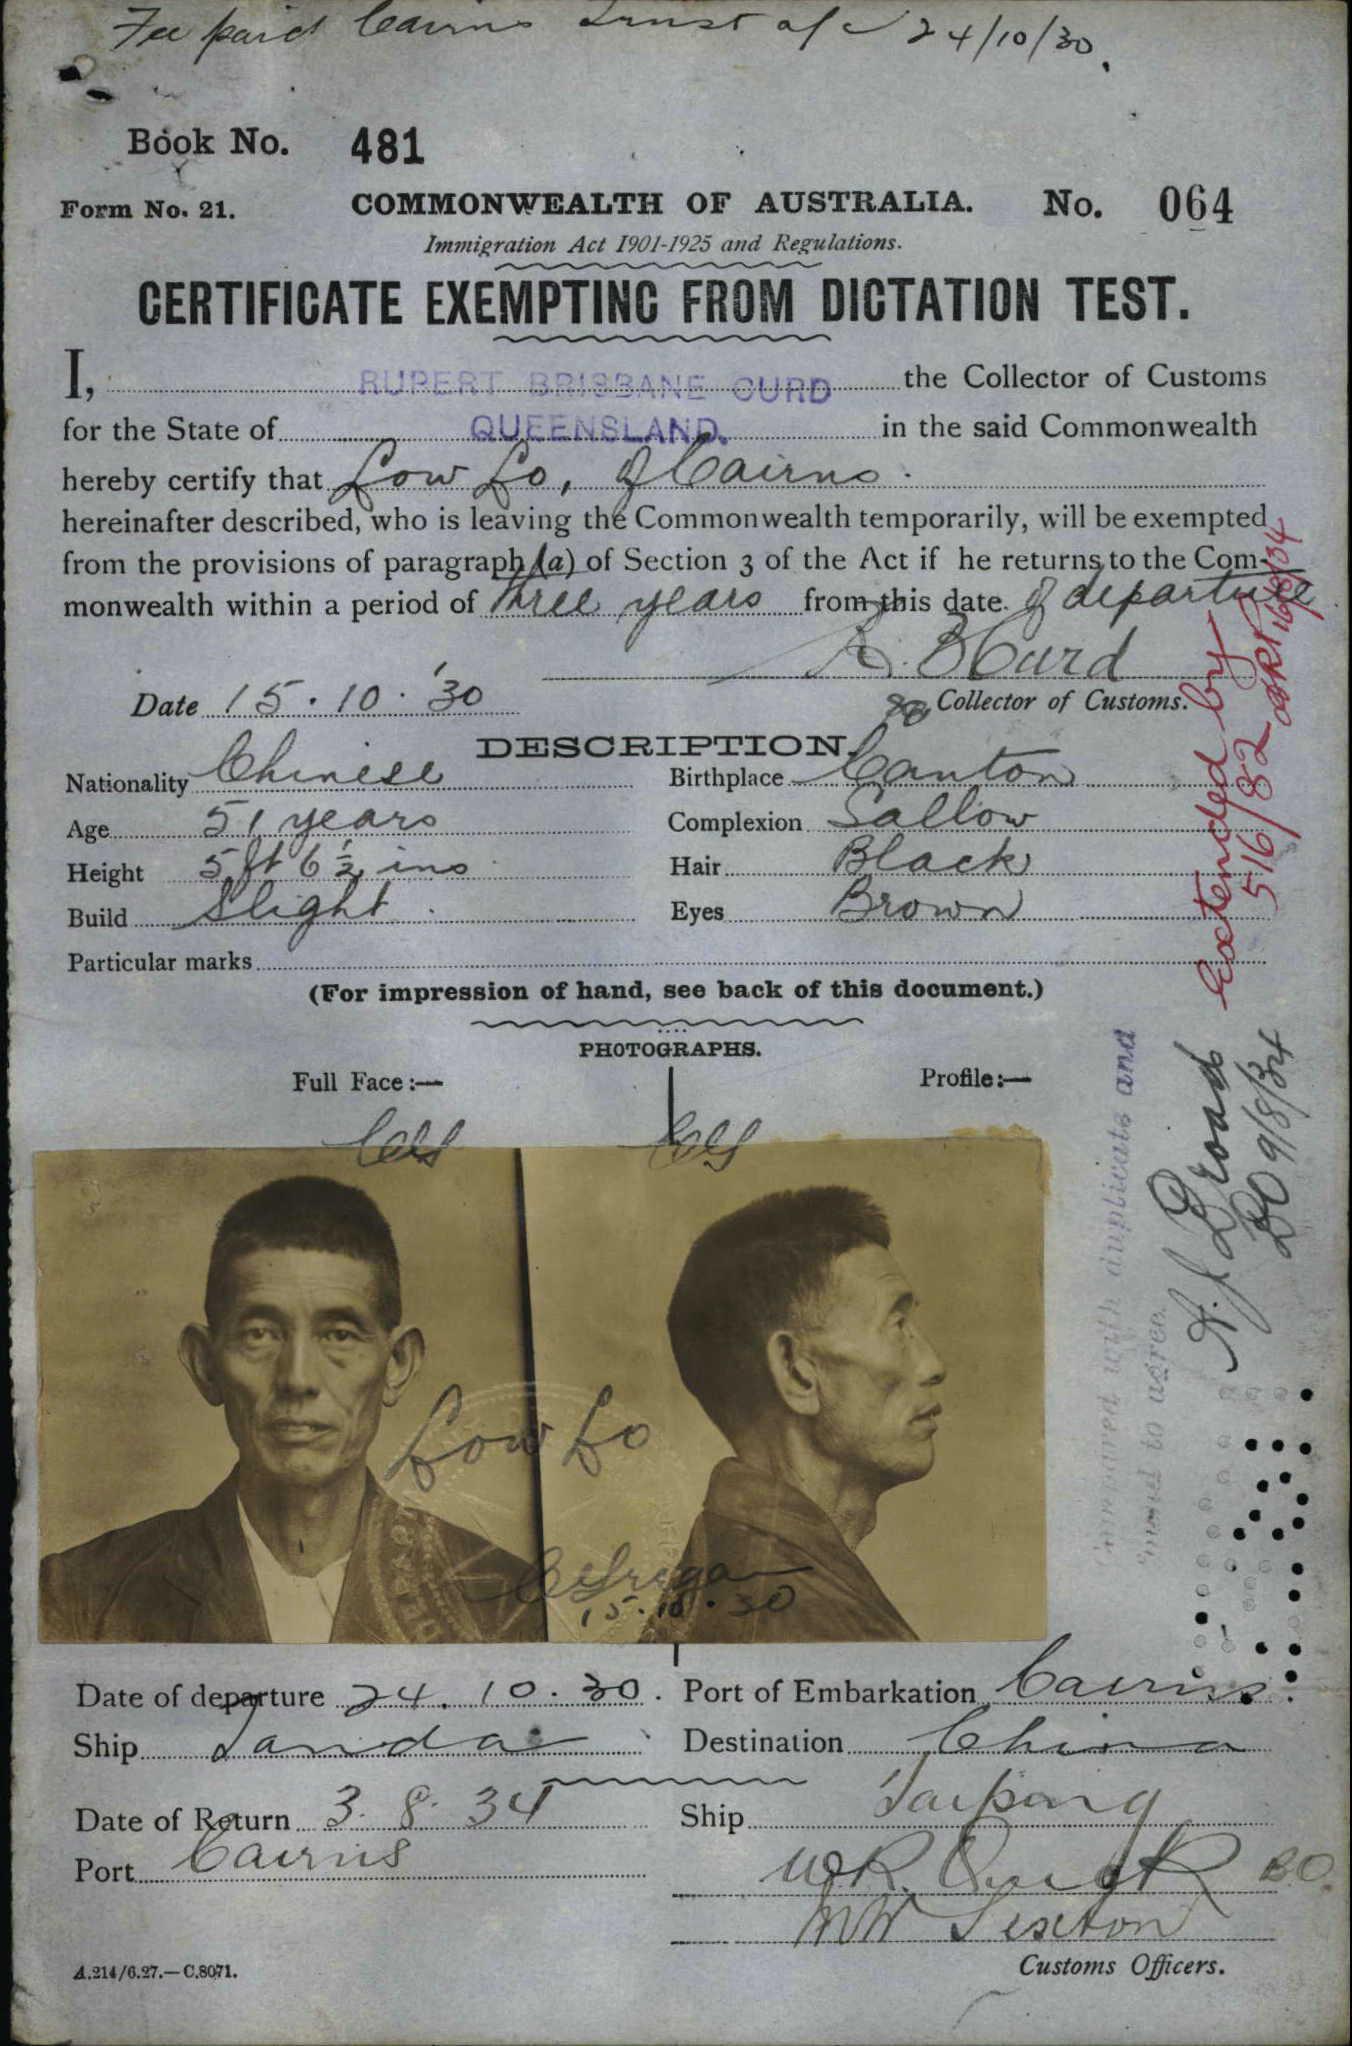 Fee paid Cairns Trust a/c 24/10/30.
Book No. 481
Form No. 21. COMMONWEALTH OF AUSTRALIA. No. 064
Immigration Act 1901-1925 and Regulations.
CERTIFICATE EXEMPTING FROM DICTATION TEST.
I, RUPERT BRISBANE CURD the Collector of Customs
for the State of QUEENSLAND. in the said Commonwealth
hereby certify that Low Lo, of Cairns.
hereinafter described, who is leaving the Commonwealth temporarily, will be exempted
from the provisions of paragraph (a) of Section 3 of the Act if he returns to the Com-
monwealth within a period of three years from this date of departure
R. B Curd
Date 15.10.'30 Collector of Customs.
DESCRIPTION.
Nationality Chinese Birthplace Canton
Age 51 years Complexion Sallow
Height 5 ft 6 ½ ins Hair Black
Build Slight Eyes Brown
Particular marks
(For impression of hand, see back of this document.)
PHOTOGRAPHS.
Full Face:— Profile:—
Low Lo
15.10.30
Date of departure 24.10.30. Port of Embarkation Cairns.
Ship Tanda Destination China
Date of Return 3.8.34 Ship Taiping
Port Cairns
W R. BO.
Sexton
Customs Officers.
A.214/6.27.—C.8071.
Extended by
516/82
16/8/34
Compared with duplicate and
found to agree.
A. J.
BO 9/8/34